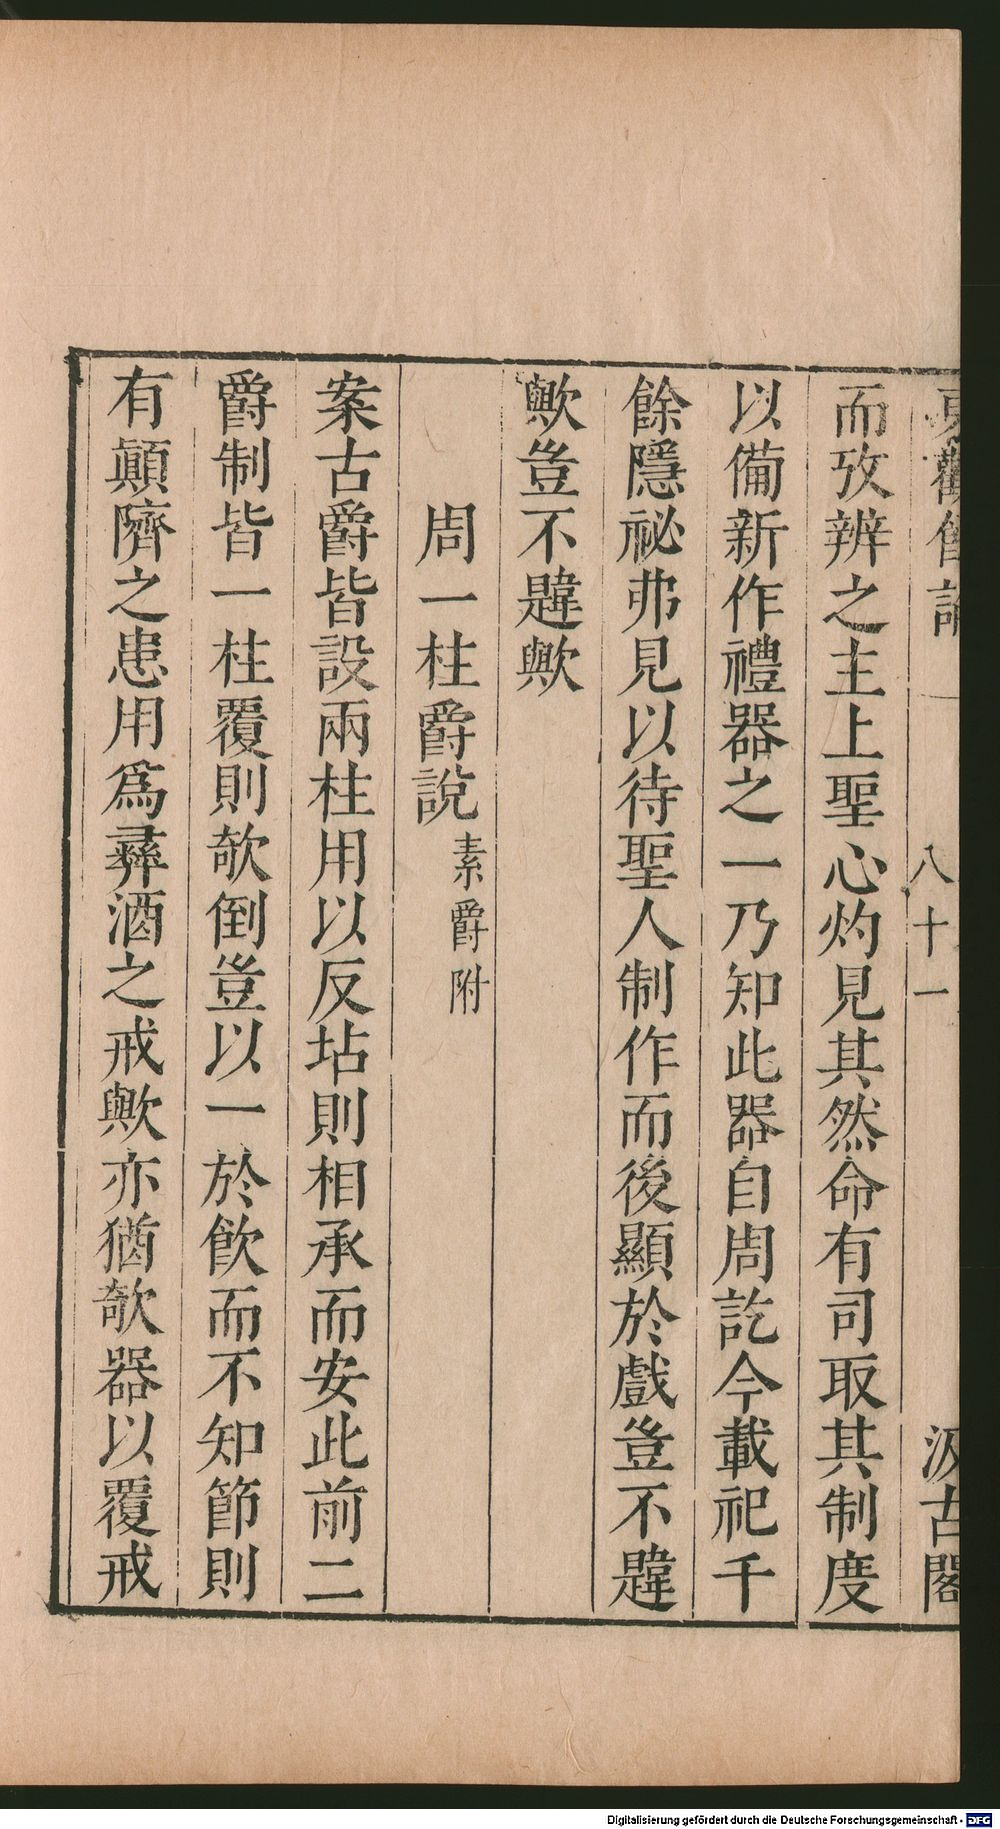 八十一
汲古閣
而攷辨之主上聖心灼見其然命有司取其制度
以備新作禮器之一乃知此器自周訖今載祀千
餘隱祕弗見以待聖人制作而後顯於戲豈不韙
歟豈不韙歟
周一柱爵說素爵附
案古爵皆設兩柱用以反坫則相承而安此前二
爵制皆一柱覆則欹倒豈以一於飲而不知節則
有顛隮之患用爲彛酒之戒歟亦猶欹器以覆戒
Digitalisierung gefördert durch die Deutsche Forschungsgemeinschaft - DFG